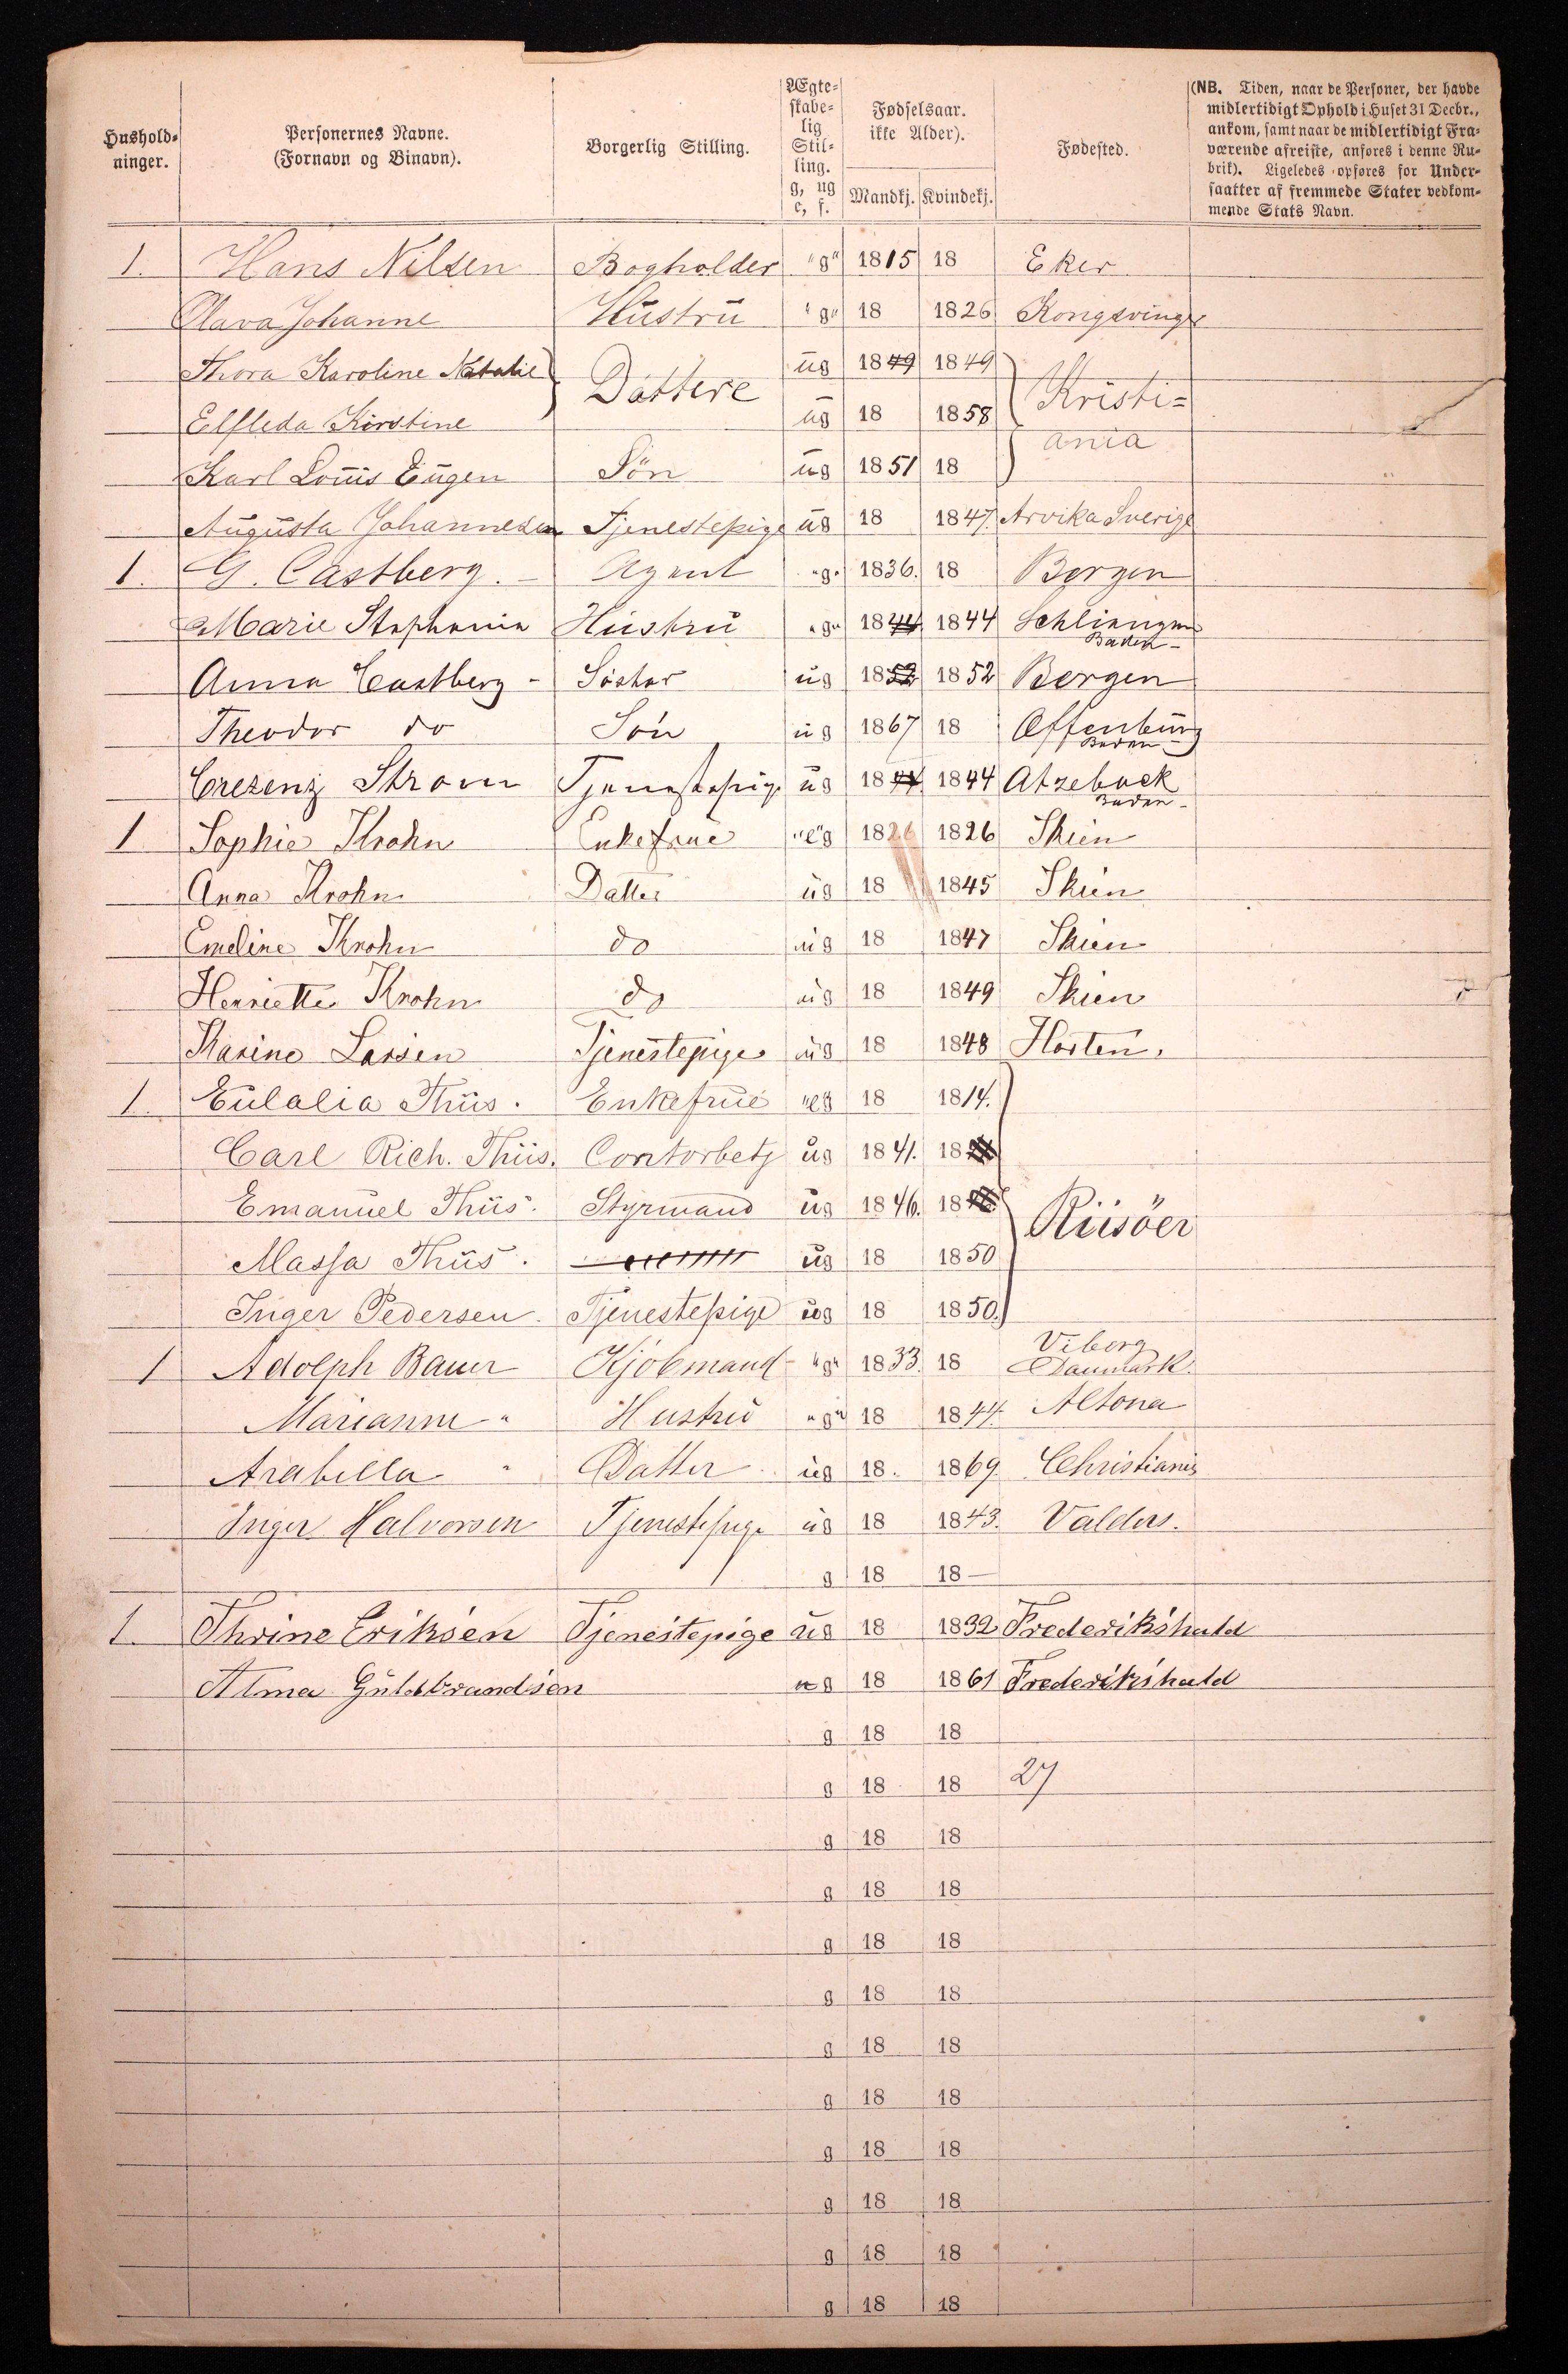 Hushold-
ninger.
Personernes Navne.
(Fornavn og Binavn).
Borgerlig Stilling.
Ægte-
skabe-
lig
Stil-
ling.
g, ug
e, f.
Fødselsaar.
ikke Alder).
Mandkj. Kvindekj.
Fødested.
(NB. Tiden, naar de Personer, der havde
midlertidigt Ophold i Huset 31 Decbr.,
ankom, samt naar de midlertidigt Fra-
værende afreiste, anføres i denne Ru-
brik). Ligeledes opføres for Under-
saatter af fremmede Stater vedkom-
mende Stats Navn.
1. Hans Nilsen Bogholder "g" 1815 18 Eker
Olava Johanne Hustru "g" 18 1826 Kongsvinger
Thora Karoline Natalie Døttere ug 1849 1849 Kristi=
Elfleda Kirstine ug 18 1858
ania
Karl Louis Eugen Søn ug 1851 18
Augusta Johannesen Tjenestepige ug 18 1847. Arvika Sverige
1. G. Castberg. Agent "g" 1836. 18 Bergen
Marie Stephanie Hustru "g" 1844 1844 Schliengen
Baden
Anna Castberg Søster ug 1852 1852 Bergen
Theodor do Søn ug 1867 18 Offenburg
Baden
Crezenz Strom Tjenestepige ug 1844 1844 Atzebach
Baden
1 Sophie Krohn Enkefrue "e"g 1826 1826 Skien
Anna Krohn Datter ug 18 1845 Skien
Emeline Krohn do ug 18 1847 Skien
Henriette Krohn do ug 18 1849 Skien
Karine Larsen Tjenestepige ug 18 1848 Horten.
1. Eulalia Thiis. Enkefrue "eg 18 1814.
Carl Rich. Thiis. Contorbetj ug 1841. 18
Emanuel Thiis. Styrmand ug 1846. 18 Riisöer
Massa Thiis. ug 18 1850
Inger Pedersen. Tjenestepige ug 18 1850.
Viborg
1 Adolph Bauer Kjøbmand "g" 1833. 18 Danmark.
Marianne " Hustru "g" 18 1844. Altona
Arabella " Datter ug 18. 1869. Christiania
Inger Halvorsen Tjenestepige ug 18 1843. Valders.
g 18 18
1. Thrine Eriksen Tjenestepige ug 18 1832 Frederikshald
Alma Guldbrandsen ug 18 1861 Frederikshald
g 18 18
g 18 18 27
g 18 18
g 18 18
g 18 18
g 18 18
g 18 18
g 18 18
g 18 18
g 18 18
g 18 18
g 18 18